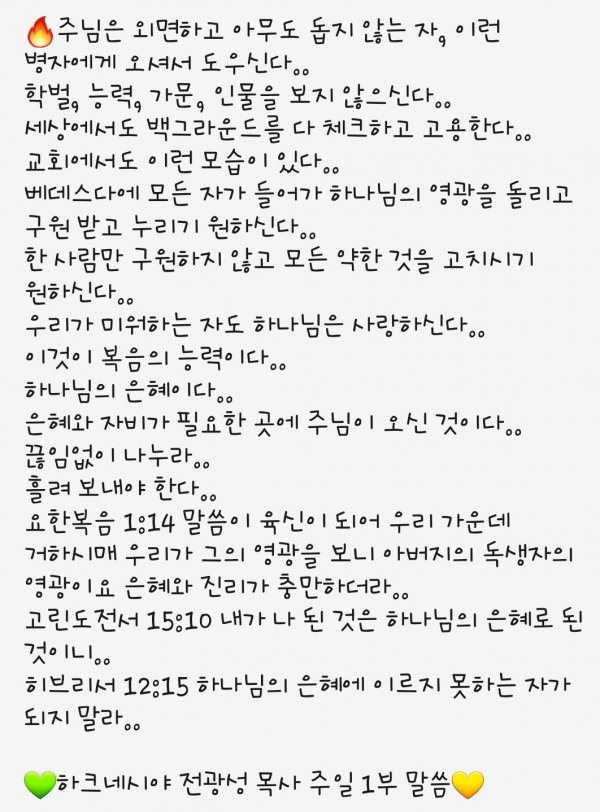 🔥주님은 외면하고 아무도 돕지 않는 자, 이런
병자에게 오셔서 도우신다..
학벌, 능력, 가문, 인물을 보지 않으신다..
세상에서도 백그라운드를 다 체크하고 고용한다..
교회에서도 이런 모습이 있다..
베데스다에 모든 자가 들어가 하나님의 영광을 돌리고
구원 받고 누리기 원하신다..
한 사람만 구원하지 않고 모든 약한 것을 고치시기
원하신다..
우리가 미워하는 자도 하나님은 사랑하신다..
이것이 복음의 능력이다..
하나님의 은혜이다..
은혜와 자비가 필요한 곳에 주님이 오신 것이다..
끊임없이 나누라..
흘려 보내야 한다..
요한복음 1:14 말씀이 육신이 되어 우리 가운데
거하시매 우리가 그의 영광을 보니 아버지의 독생자의
영광이요 은혜와 진리가 충만하더라..
고린도전서 15:10 내가 나 된 것은 하나님의 은혜로 된
것이니..
히브리서 12:15 하나님의 은혜에 이르지 못하는 자가
되지 말라..
💚하크네시야 전광성 목사 주일 1부 말씀💛